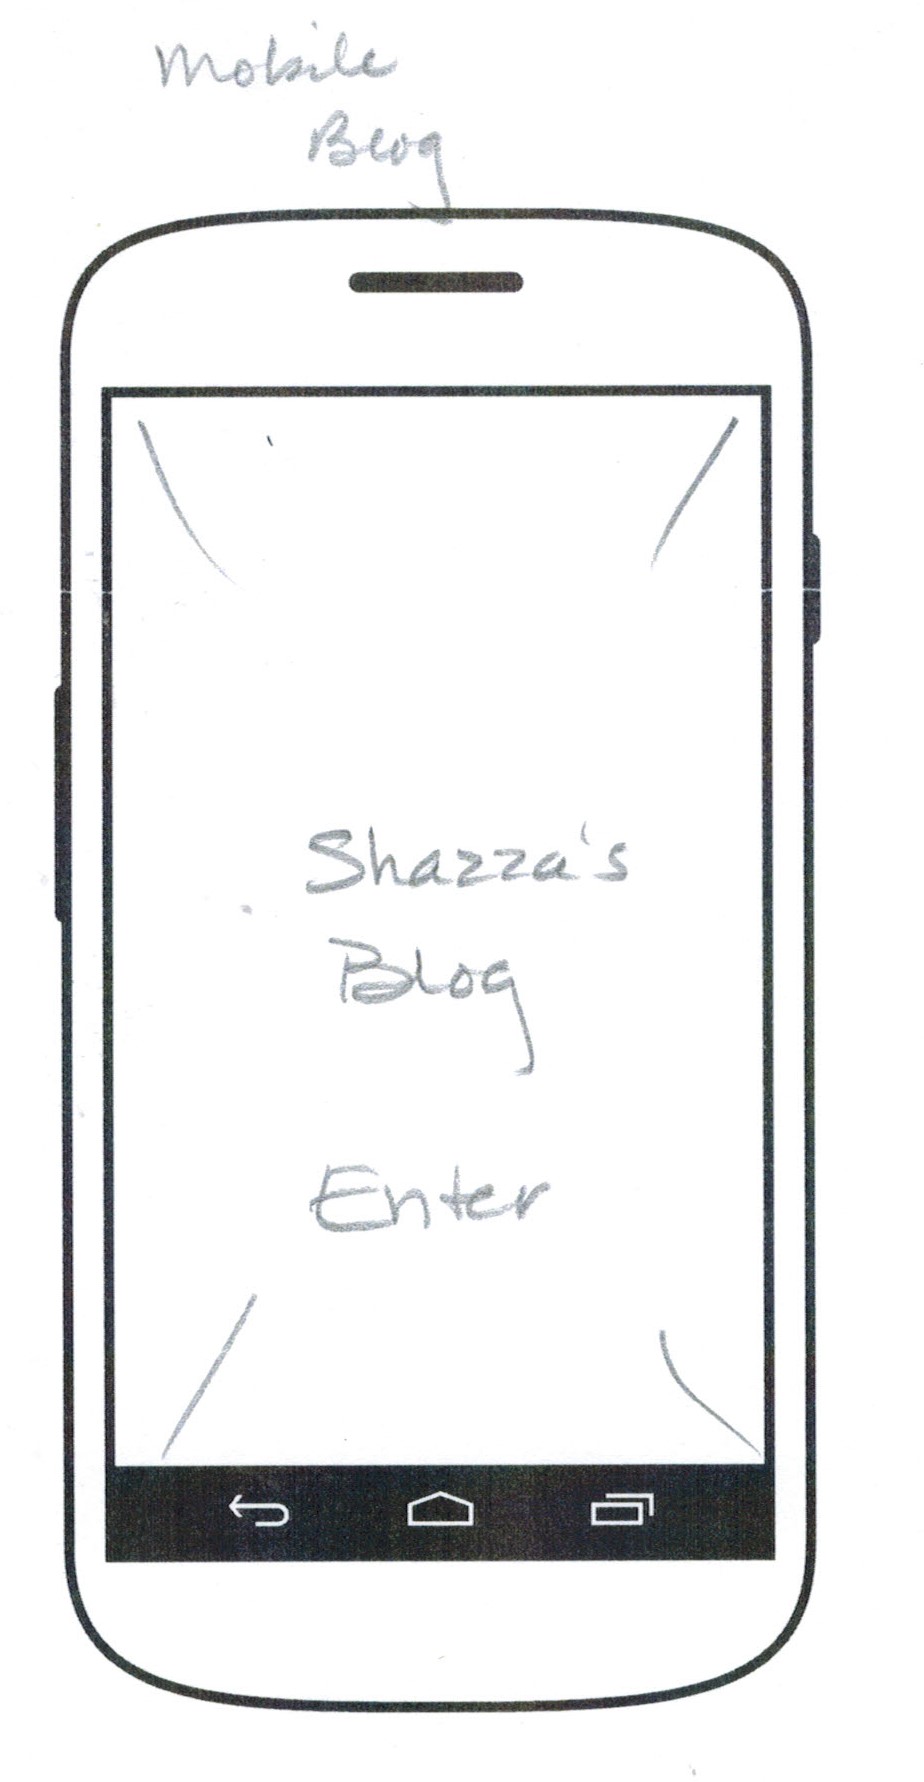 Mobile
Blog
Shazza's
Blog
Enter